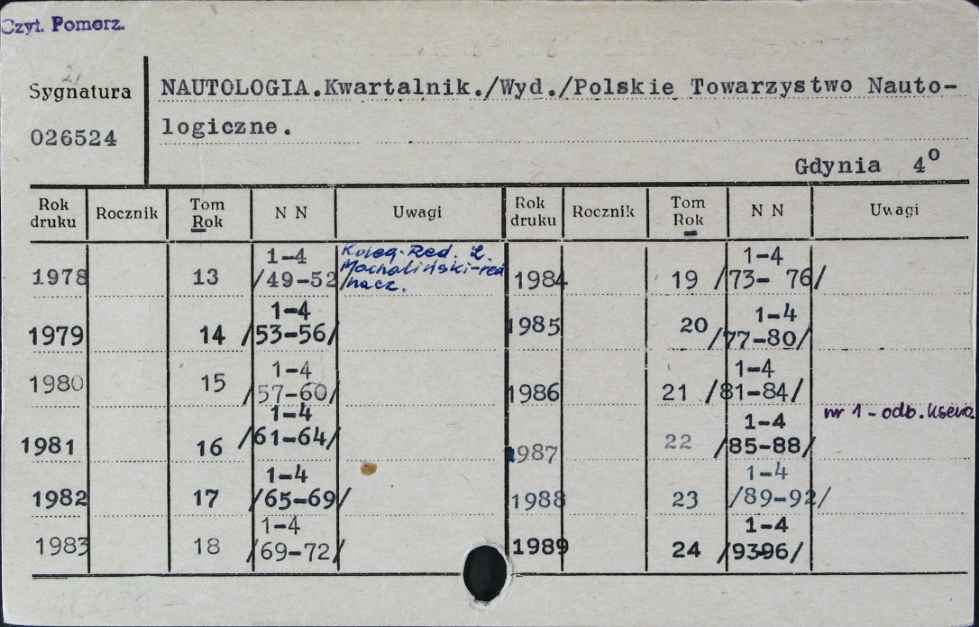 Czyt. Pomorz.
Sygnatura
026524
NAUTOLOGIA.Kwartalnik./Wyd./Polskie Towarzystwo Nauto-
logiczne.
Gdynia 4⁰
Rok druku Rocznik Tom Rok N N Uwagi Rok druku Rocznik Tom Rok N N Uwagi
1978 13 1-4 /49-52/ Koleg. Red. Z.
Machaliński-red
nacz.
1979 14 1-4 /53-56/
1980 15 1-4 /57-60/
1981 16 1-4 /61-64/
1982 17 1-4 /65-69/
1983 18 1-4 /69-72/
1984 19 1-4 /73- 76/
1985 20 1-4 /77-80/
1986 21 1-4 /81-84/
1987 22 1-4 /85-88/ nr 1 - odb.
1988 23 1-4 /89-92/
1989 24 1-4 /9396/